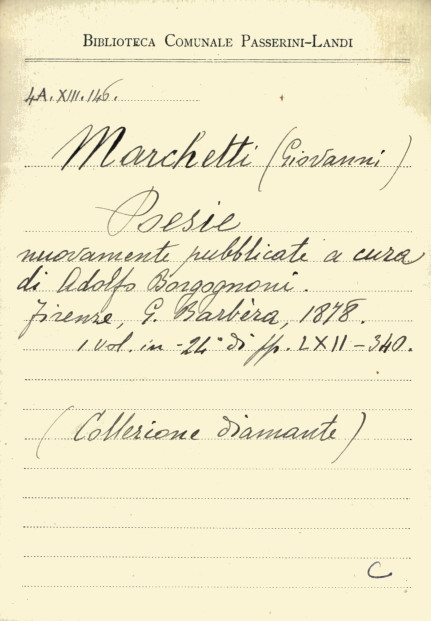 BIBLIOTECA COMUNALE PASSERINI-LANDI
4A. XIII. 146.
Marchetti (Giovanni)
Poesie
nuovamente pubblicate a cura
di Adolfo Borgognoni.
Firenze, G. Barbèra, 1878.
1 vol. in -24° di pp. LXII - 340.
(Collezione diamante)
C